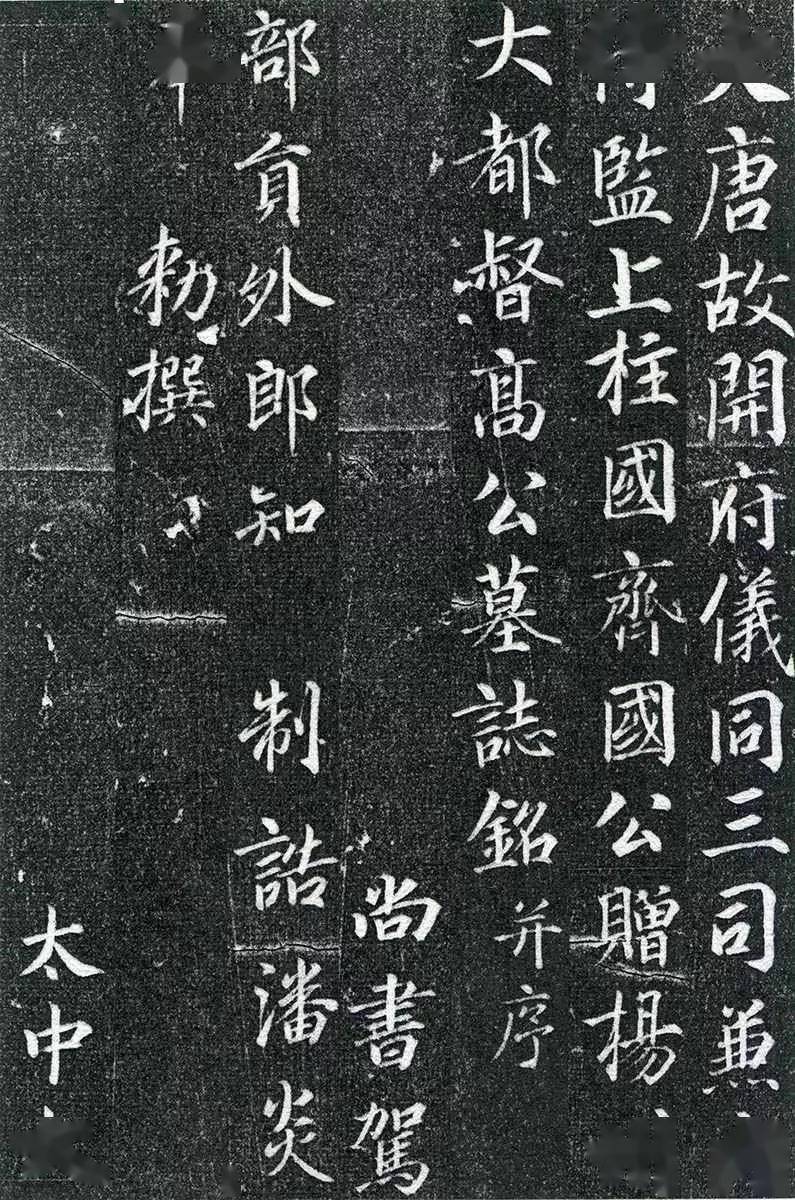 唐故開府儀同三司兼
監上柱國齊國公贈楊
大都督髙公墓誌銘并序
尚書駕
部貟外郎知 制誥潘炎
勅撰
太中